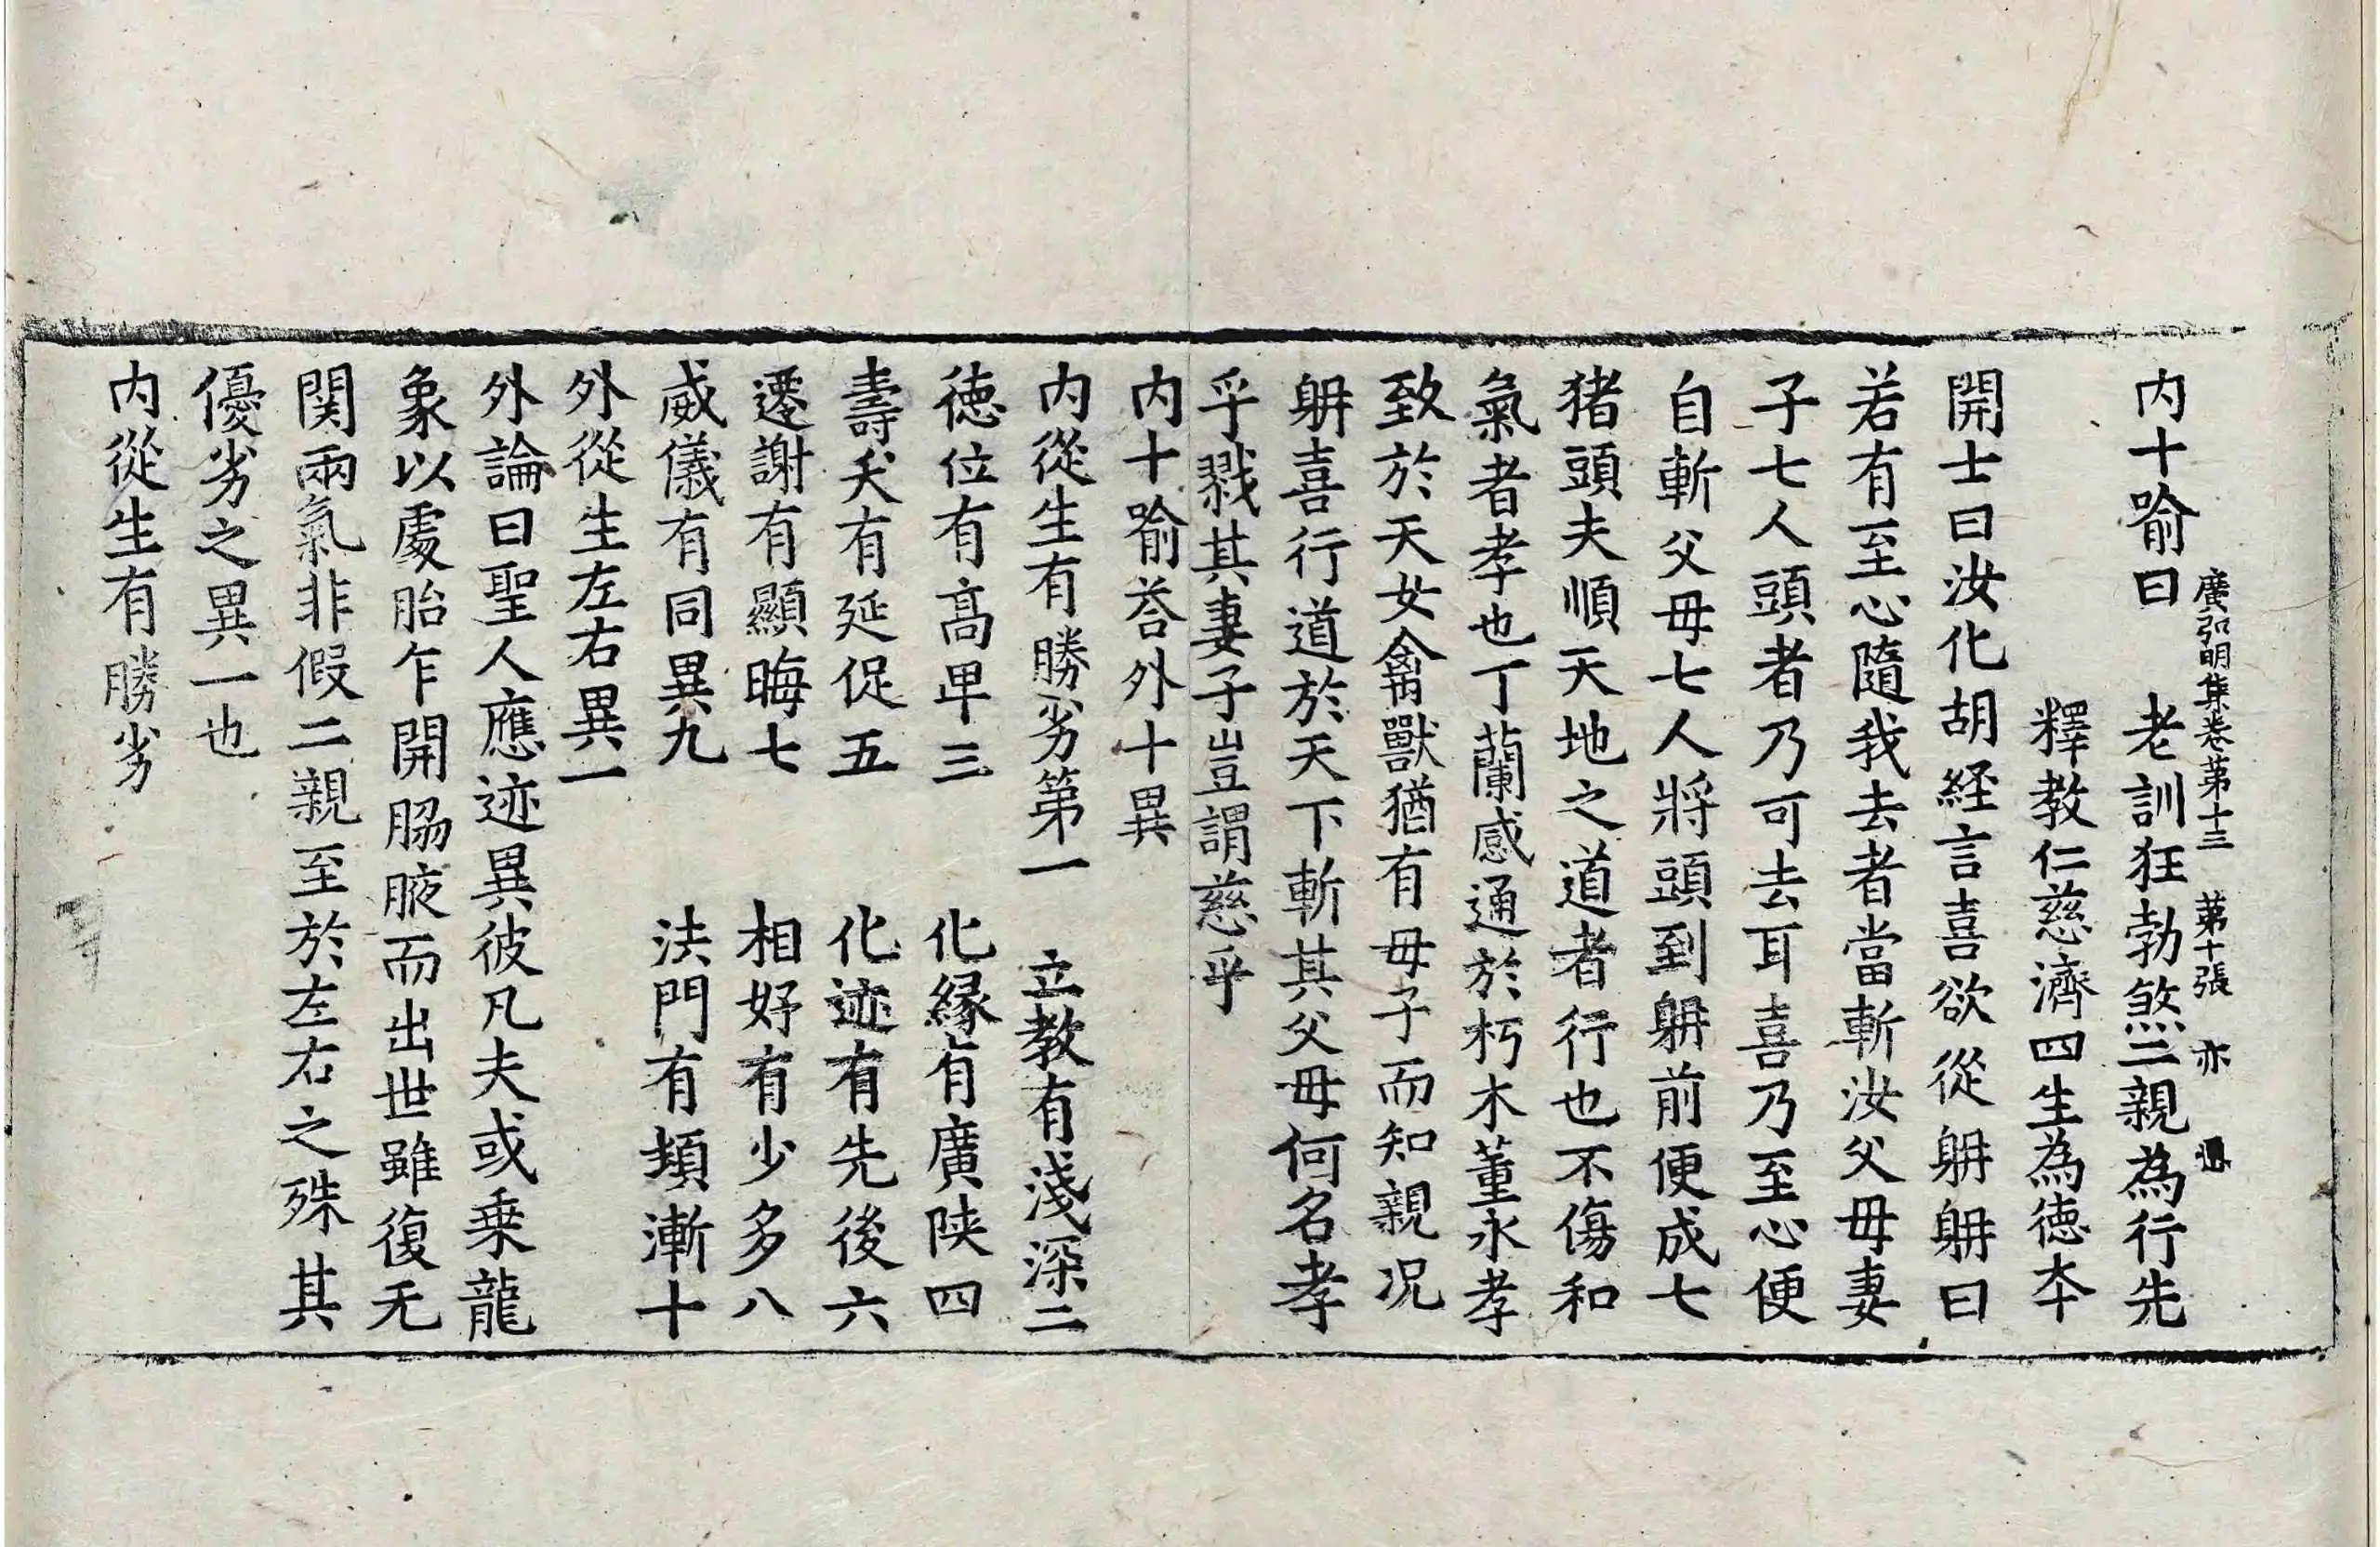 廣弘明集卷第十三 第十張 亦
内十喻曰 老訓狂勃煞二親為行先
釋教仁慈濟四生為徳夲
開士曰汝化胡経言喜欲從躭躭曰
若有至心隨我去者當斬汝父母妻
子七人頭者乃可去耳喜乃至心便
自斬父母七人將頭到躭前便成七
猪頭夫順天地之道者行也不傷和
氣者孝也丁蘭感通於朽木董永孝
致於天女禽獸猶有母子而知親况
躭喜行道於天下斬其父母何名孝
乎戮其妻子豈謂慈乎
内十喻荅外十異
内從生有勝劣第一 立教有淺深二
徳位有髙卑三 化縁有廣陜四
壽夭有延促五 化迹有先後六
遷謝有顯晦七 相好有少多八
威儀有同異九 法門有頓漸十
外從生左右異一
外論曰聖人應迹異彼凡夫或乗龍
象以處胎乍開脇腋而出世雖復无
関兩氣非假二親至於左右之殊其
優劣之異一也
内從生有勝劣